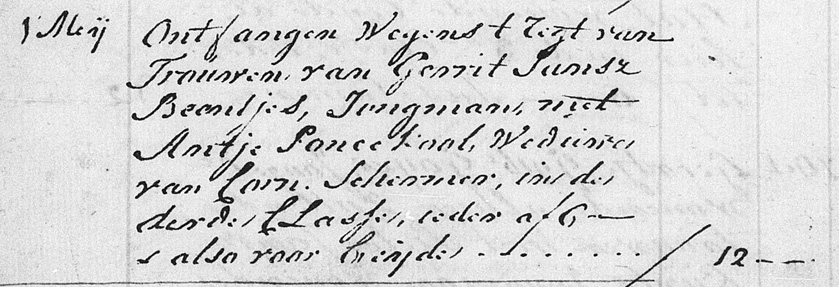 1 Meij Ontfangen Wegens t Regt van
Trouwen van Gerrit Jansz
Beentjes, Jongman, met
Antje Kaal, Weduwe
van Corn. Schermer, in de
derde Classe, ieder a f 6 —
s also voor beijde ........ / 12 — —